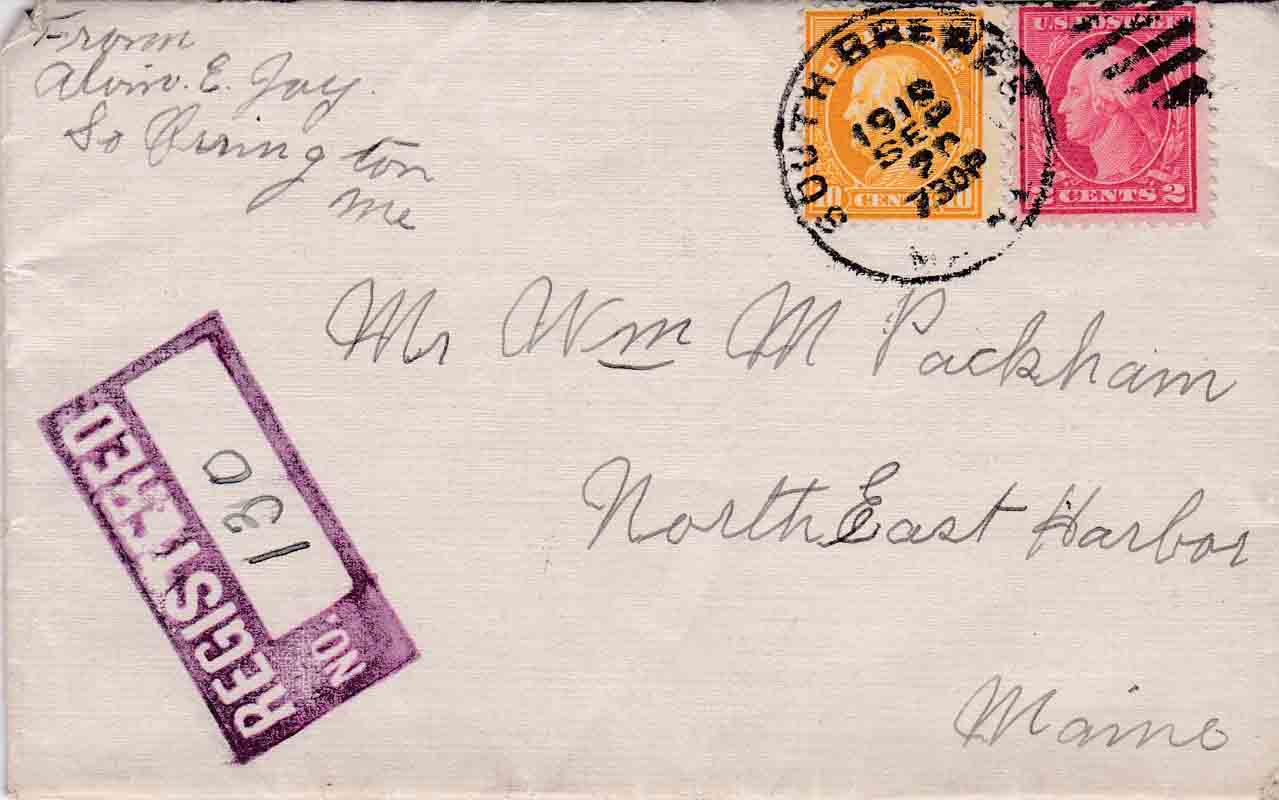 From
Alvin. E. Jay.
So Orring ton
Me
U.S. POSTAGE
2 CENTS 2
10 CENTS 10
SOUTH BREWER
SEP
730P
Mr Wm M Packham
North East Harbor
Maine
REGISTERED
NO.
130